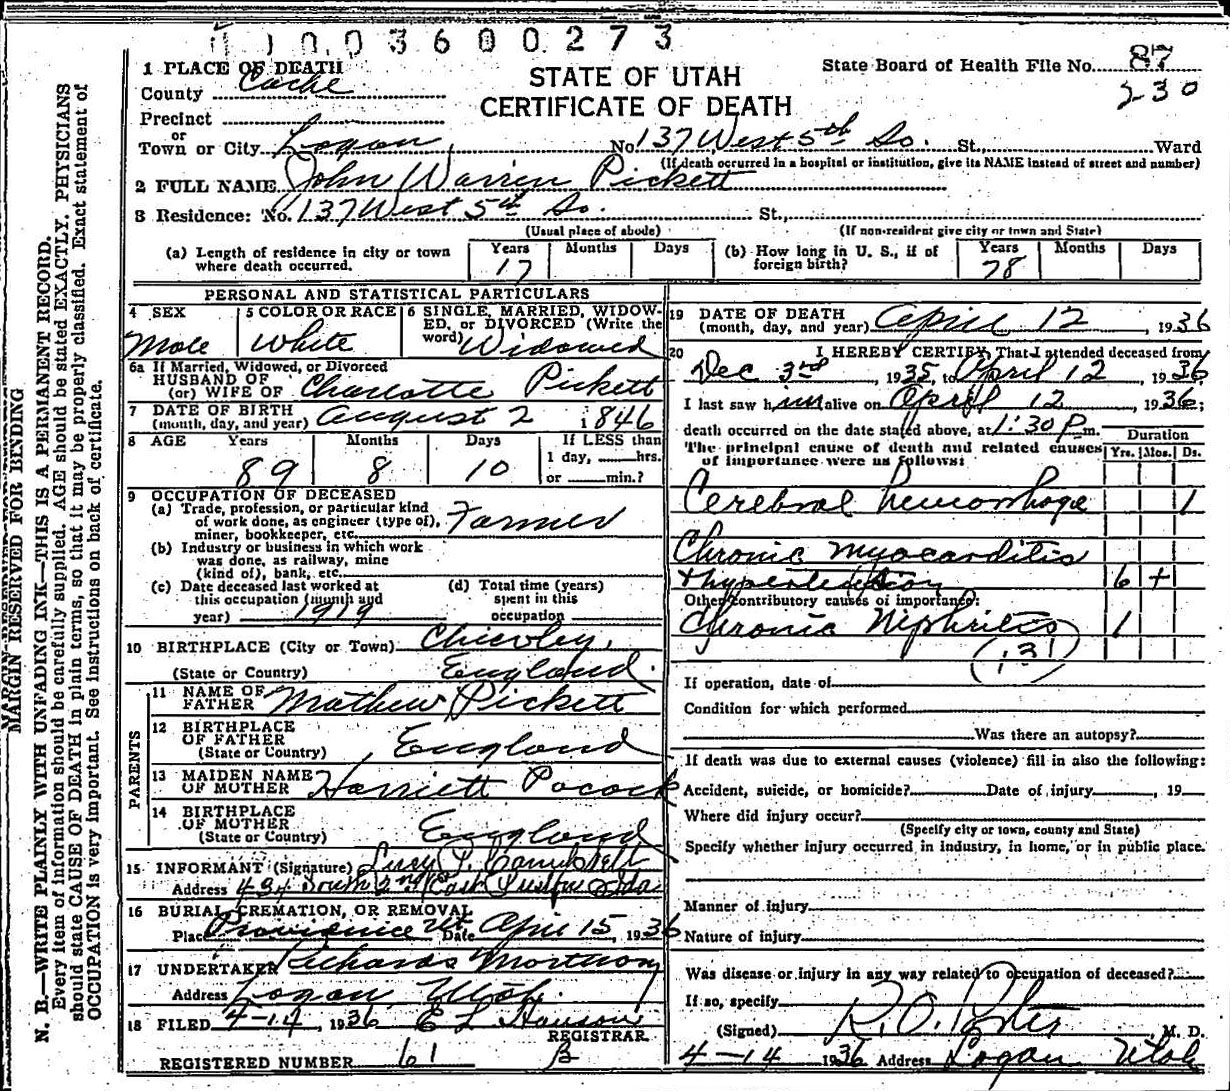 11003600273
1 PLACE OF DEATH
STATE OF UTAH
CERTIFICATE OF DEATH
State Board of Health File No. 87
230
County Cache
Precinct
or
Town or City Logan No. 137 West 5th So. St., Ward
(If death occurred in a hospital or institution, give its NAME instead of street and number)
2 FULL NAME John Warren Pickett
3 Residence: No. 137 West 5th So. St.,
(Usual place of abode) (If non-resident give city or town and State)
(a) Length of residence in city or town where death occurred. Years 17 Months Days (b) How long in U. S., if of foreign birth? Years 78 Months Days
PERSONAL AND STATISTICAL PARTICULARS
4 SEX Male
5 COLOR OR RACE White
6 SINGLE, MARRIED, WIDOWED, or DIVORCED (Write the word) Widowed
6a If Married, Widowed, or Divorced
HUSBAND OF
(or) WIFE OF Charlotte Pickett
7 DATE OF BIRTH
(month, day, and year) August 2 1846
8 AGE Years 89 Months 8 Days 10 If LESS than 1 day, hrs. or min.?
9 OCCUPATION OF DECEASED
(a) Trade, profession, or particular kind of work done, as engineer (type of), miner, bookkeeper, etc. Farmer
(b) Industry or business in which work was done, as railway, mine (kind of), bank, etc.
(c) Date deceased last worked at this occupation (month and year) 1919
(d) Total time (years) spent in this occupation
10 BIRTHPLACE (City or Town) Chieveley,
(State or Country) England.
PARENTS
11 NAME OF FATHER Mathew Pickett
12 BIRTHPLACE OF FATHER
(State or Country) England
13 MAIDEN NAME OF MOTHER Harriett Pocock
14 BIRTHPLACE OF MOTHER
(State or Country) England
15 INFORMANT (Signature) Lucy P. Campbell
Address 434 South 2nd East Ida
16 BURIAL, CREMATION, OR REMOVAL
Place Providence Ut Date April 15, 1936
17 UNDERTAKER Richards Mortuary
Address Logan Utah.
18 FILED 4-14, 1936 E L Hanson
REGISTRAR
REGISTERED NUMBER 61
19 DATE OF DEATH
(month, day, and year) April 12, 1936
20 I HEREBY CERTIFY, That I attended deceased from
Dec 3rd, 1935, to April 12, 1936
I last saw him alive on April 12, 1936;
death occurred on the date stated above, at 1:30 P.m.
Duration
The principal cause of death and related causes of importance were as follows: Yrs. Mos. Ds.
Cerebral hemorrhage 1
Chronic myocarditis
+ hypertension 6 +
Other contributory causes of importance:
Chronic Nephritis 1
(131)
If operation, date of
Condition for which performed
Was there an autopsy?
If death was due to external causes (violence) fill in also the following:
Accident, suicide, or homicide? Date of injury, 19
Where did injury occur?
(Specify city or town, county and State)
Specify whether injury occurred in industry, in home, or in public place.
Manner of injury
Nature of injury
Was disease or injury in any way related to occupation of deceased?
If so, specify
(Signed) R. O. Porter, M. D.
4-14 1936 Address Logan Utah
MARGIN RESERVED FOR BINDING
N. B.—WRITE PLAINLY WITH UNFADING INK—THIS IS A PERMANENT RECORD.
Every item of information should be carefully supplied. AGE should be stated EXACTLY. PHYSICIANS
should state CAUSE OF DEATH in plain terms, so that it may be properly classified. Exact statement of
OCCUPATION is very important. See instructions on back of certificate.